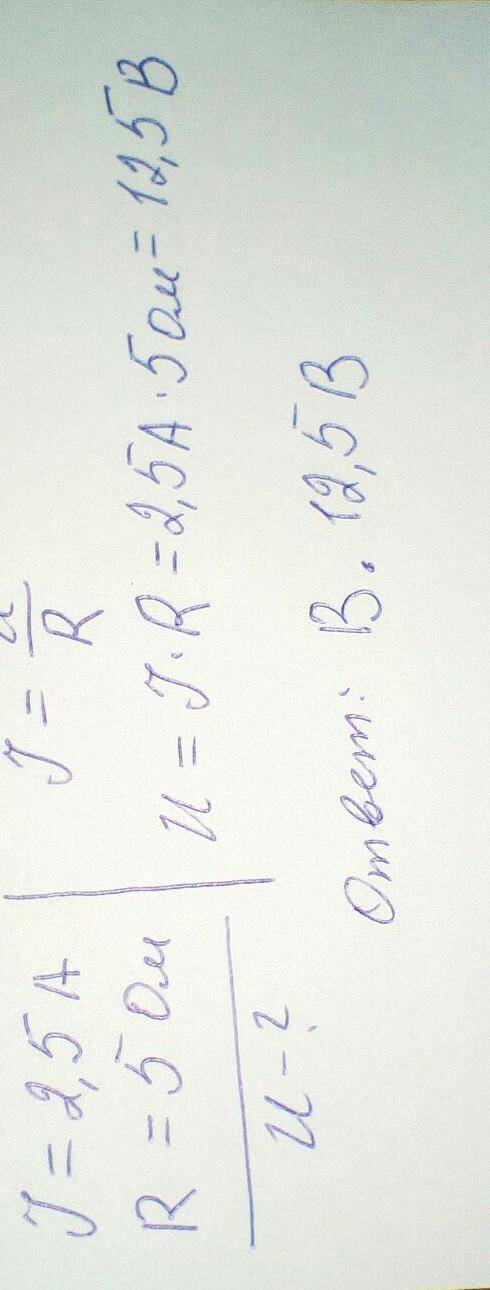 J = 2,5 А
R = 5 Ом
U - ?
J = U/R
U = J · R = 2,5А · 5 Ом = 12,5В
Ответ: В. 12,5В